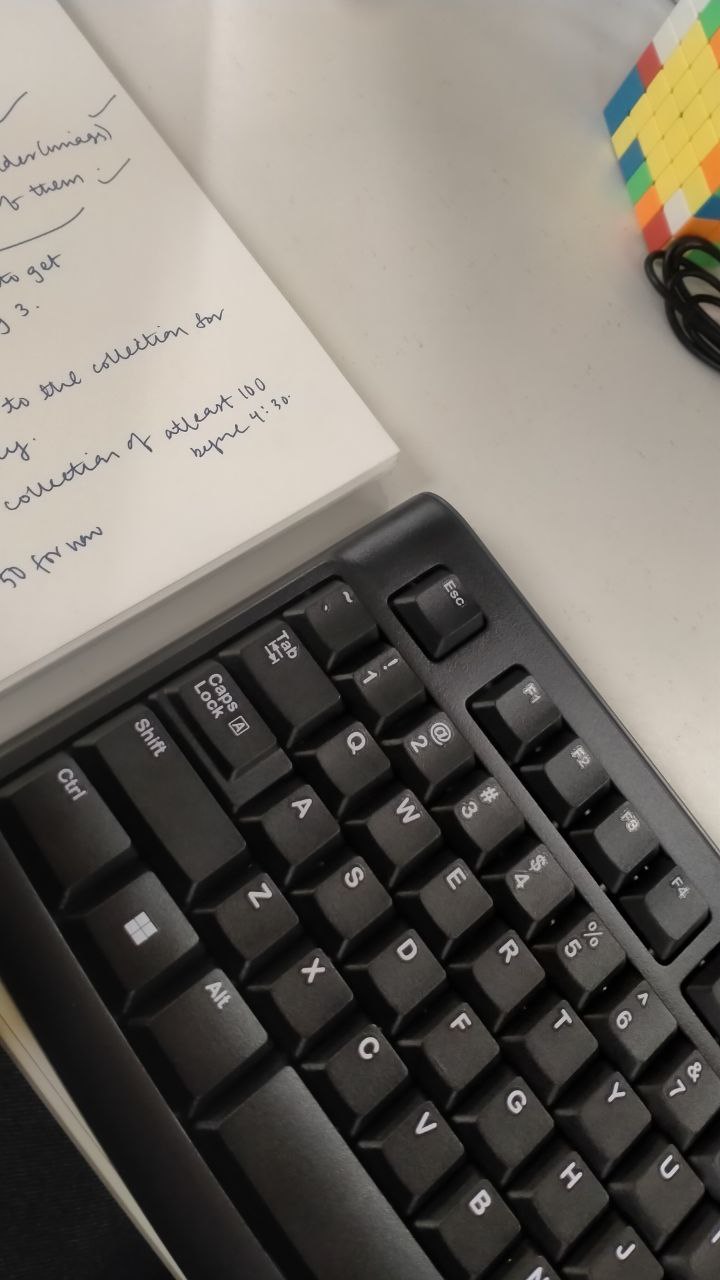 der(images)
of them :
to get
g 3.
to the collection for
y.
collection of atleast 100
before 4:30.
50 for now
Esc
F1
F2
F3
F4
~ `
! 1
@ 2
# 3
$ 4
% 5
^ 6
& 7
Tab
Q
W
E
R
T
Y
U
Caps Lock A
A
S
D
F
G
H
J
Shift
Z
X
C
V
B
Ctrl
Alt